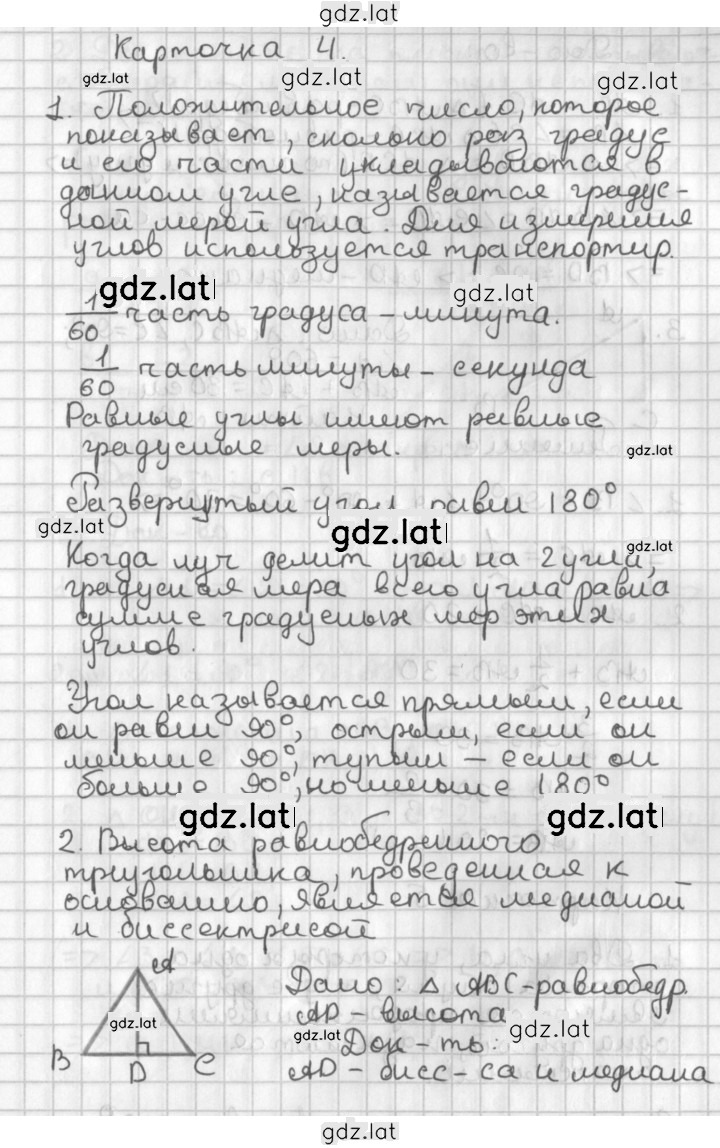 gdz.lat
Карточка 4.
gdz.lat gdz.lat gdz.lat
1. Положительное число, которое
показывает, сколько раз градус
и его части укладываются в
данном угле, называется градус-
ной мерой угла. Для измерения
углов используется транспортир.
gdz.lat gdz.lat
1/60 часть градуса – минута.
1/60 часть минуты – секунда
Равные углы имеют равные
градусные меры.
gdz.lat
Развернутый угол равен 180°
gdz.lat gdz.lat
Когда луч делит угол на 2 угла,
gdz.lat
градусная мера всего угла равна
сумме градусных мер этих
углов.
Угол называется прямым, если
он равен 90°, острым, если он
меньше 90°, тупым – если он
больше 90°, но меньше 180°
gdz.lat gdz.lat
2. Высота равнобедренного
треугольника, проведенная к
основанию, является медианой
и биссектрисой
A
B D C
gdz.lat
Дано: △ ABC-равнобедр.
AD - высота
gdz.lat gdz.lat
Док-ть:
AD - бисс-са и медиана
gdz.lat